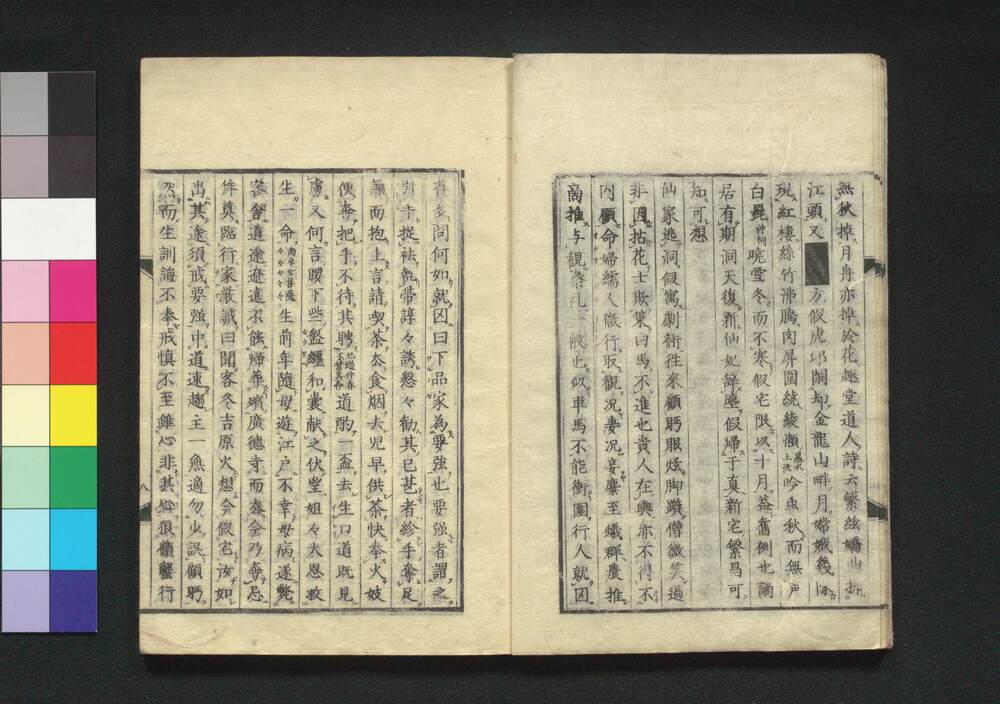 無秋掉月舟亦掉於花趣堂道人詩云繁絃嬌山折
江頭又 方假虎邱開却金龍山畔月嫦娥幾
現紅樓絲竹沸騰肉屏圍繞綾瀬吟虫秋而無声
白髭神祠曉雪冬而不寒假宅限以十月蓋舊例也謫
居有期洞天復新仙妃辭塵假歸于真新宅繁昌可
知可想
仙家逃洞假寓劇街往來顧眄眼炫脚躓僧微笑過
非因拈花士欺策曰馬不進也貴人在輿亦不得不
内顧命婦繻人微行取觀況妻況妾麋至蟻群農推
商推与観察
波也似車馬不能衝圍行人就囚
問何如就囚曰下品家為要強也要強者謂之
手捉袪執帯諄々誘懇々勸其已甚者紾手奪足
而抱上言請喫茶否食烟去児早供茶快奉火妓
便奪把手不待其聘道酌一盃去生口道既見
虜又何言腰下些盤纏和嚢献之伏望姐々大恩救
生一命生前年隨母遊江戸不幸母病遂斃
客舍道途遼遠不能帰葬殯廣徳寺而奔全乃奪忌
奠臨行家嚴誡曰聞客冬吉原火想今假宅汝如
出其途須戒要强中道速趨主一無適勿少誤顧眄
然而生訓誨不奉戒慎不至雖心非其処狼蟹行